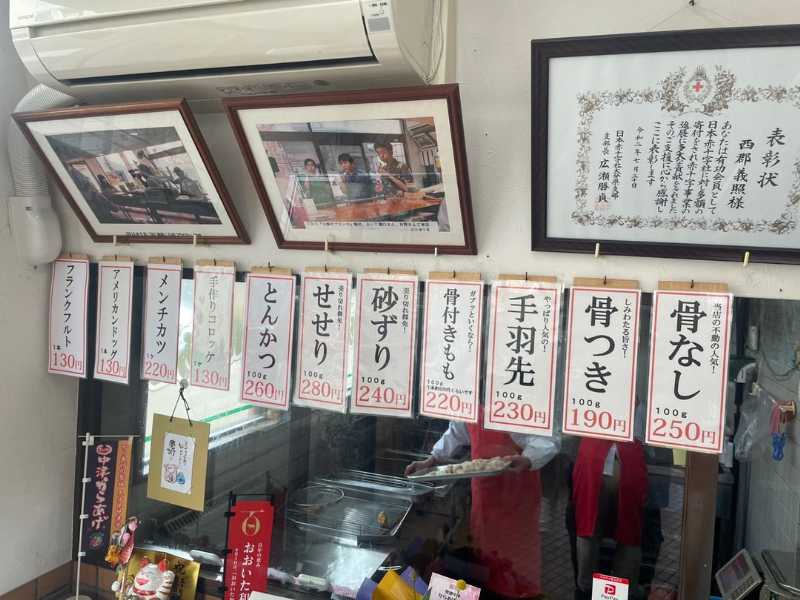 表彰状
西郡義照様
あなたは有功会員として
日本赤十字社に対し多額の
寄付をされ赤十字事業の
進展に多大の貢献をされました
そのご支援に心から感謝し
ここに表彰します
令和二年七月三十日
日本赤十字社大分県支部
支部長 広瀬勝貞
当店の不動の人気!
骨なし
100g
250円
しみわたる旨さ!
骨つき
100g
190円
やっぱり人気の!
手羽先
100g
230円
ガブッといくなら!
骨付きもも
220円
売り切れ御免!
砂ずり
100g
240円
売り切れ御免!
せせり
100g
280円
とんかつ
100g
260円
手作りコロッケ
130円
メンチカツ
1ケ
220円
アメリカンドッグ
1本
130円
フランクフルト
1本
130円
中津からあげ
おおいた
PayPay